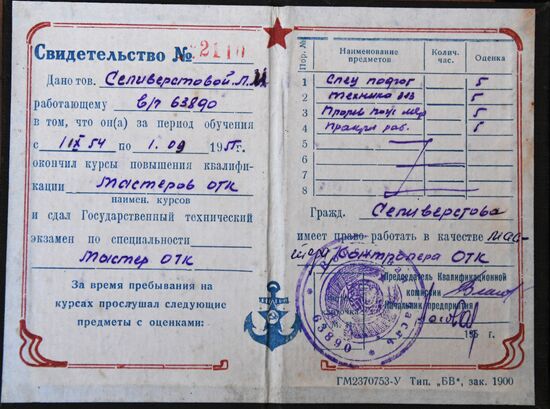 Свидетельство № 2110
Дано тов. Селиверстовой Л.
работающему в/п 63890
в том, что он(а) за период обучения
с 1 IX 54 по 1. 09 195 г.
окончил курсы повышения квалифи-
кации Мастеров ОТК
наимен. курсов
и сдал Государственный технический
экзамен по специальности
Мастер ОТК
За время пребывания на
курсах прослушал следующие
предметы с оценками:
Пор. № Наименование предметов Колич. час. Оценка
1 Спец подгот 5
2 Техника без 5
3 5
4 Практич раб. 5
5
6
7
8
Гражд. Селиверстова
имеет право работать в качестве мас-
тера Контролера ОТК
Председатель Квалификационной
комиссии
Начальник предприятия
195 г.
63890
ГМ2370753-У Тип. „БВ“, зак. 1900